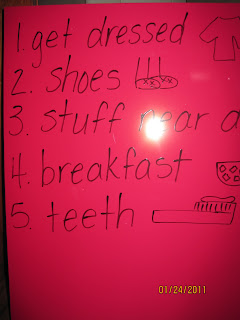 1. get dressed
2. shoes
3. stuff near
4. breakfast
5. teeth
01/24/2011